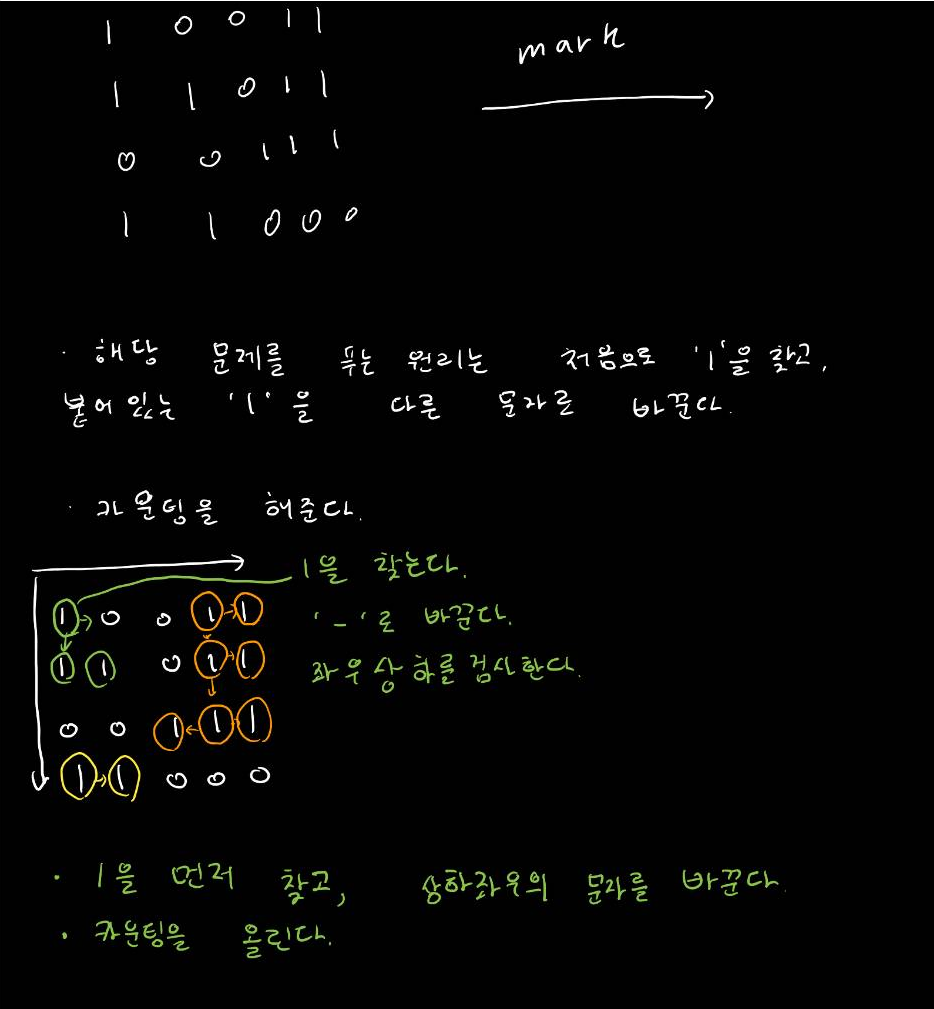 1 0 0 1 1
mark
1 1 0 1 1
0 0 1 1 1
1 1 0 0 0
· 해당 문제를 푸는 원리는 처음으로 '1'을 찾고,
붙어 있는 '1'을 다른 문자로 바꾼다.
· 카운팅을 해준다.
1을 찾는다.
1 0 0 1 1
'_'로 바꾼다.
1 1 0 1 1
좌우상하를 검사한다.
0 0 1 1 1
1 1 0 0 0
· 1을 먼저 찾고, 상하좌우의 문자를 바꾼다.
· 카운팅을 올린다.